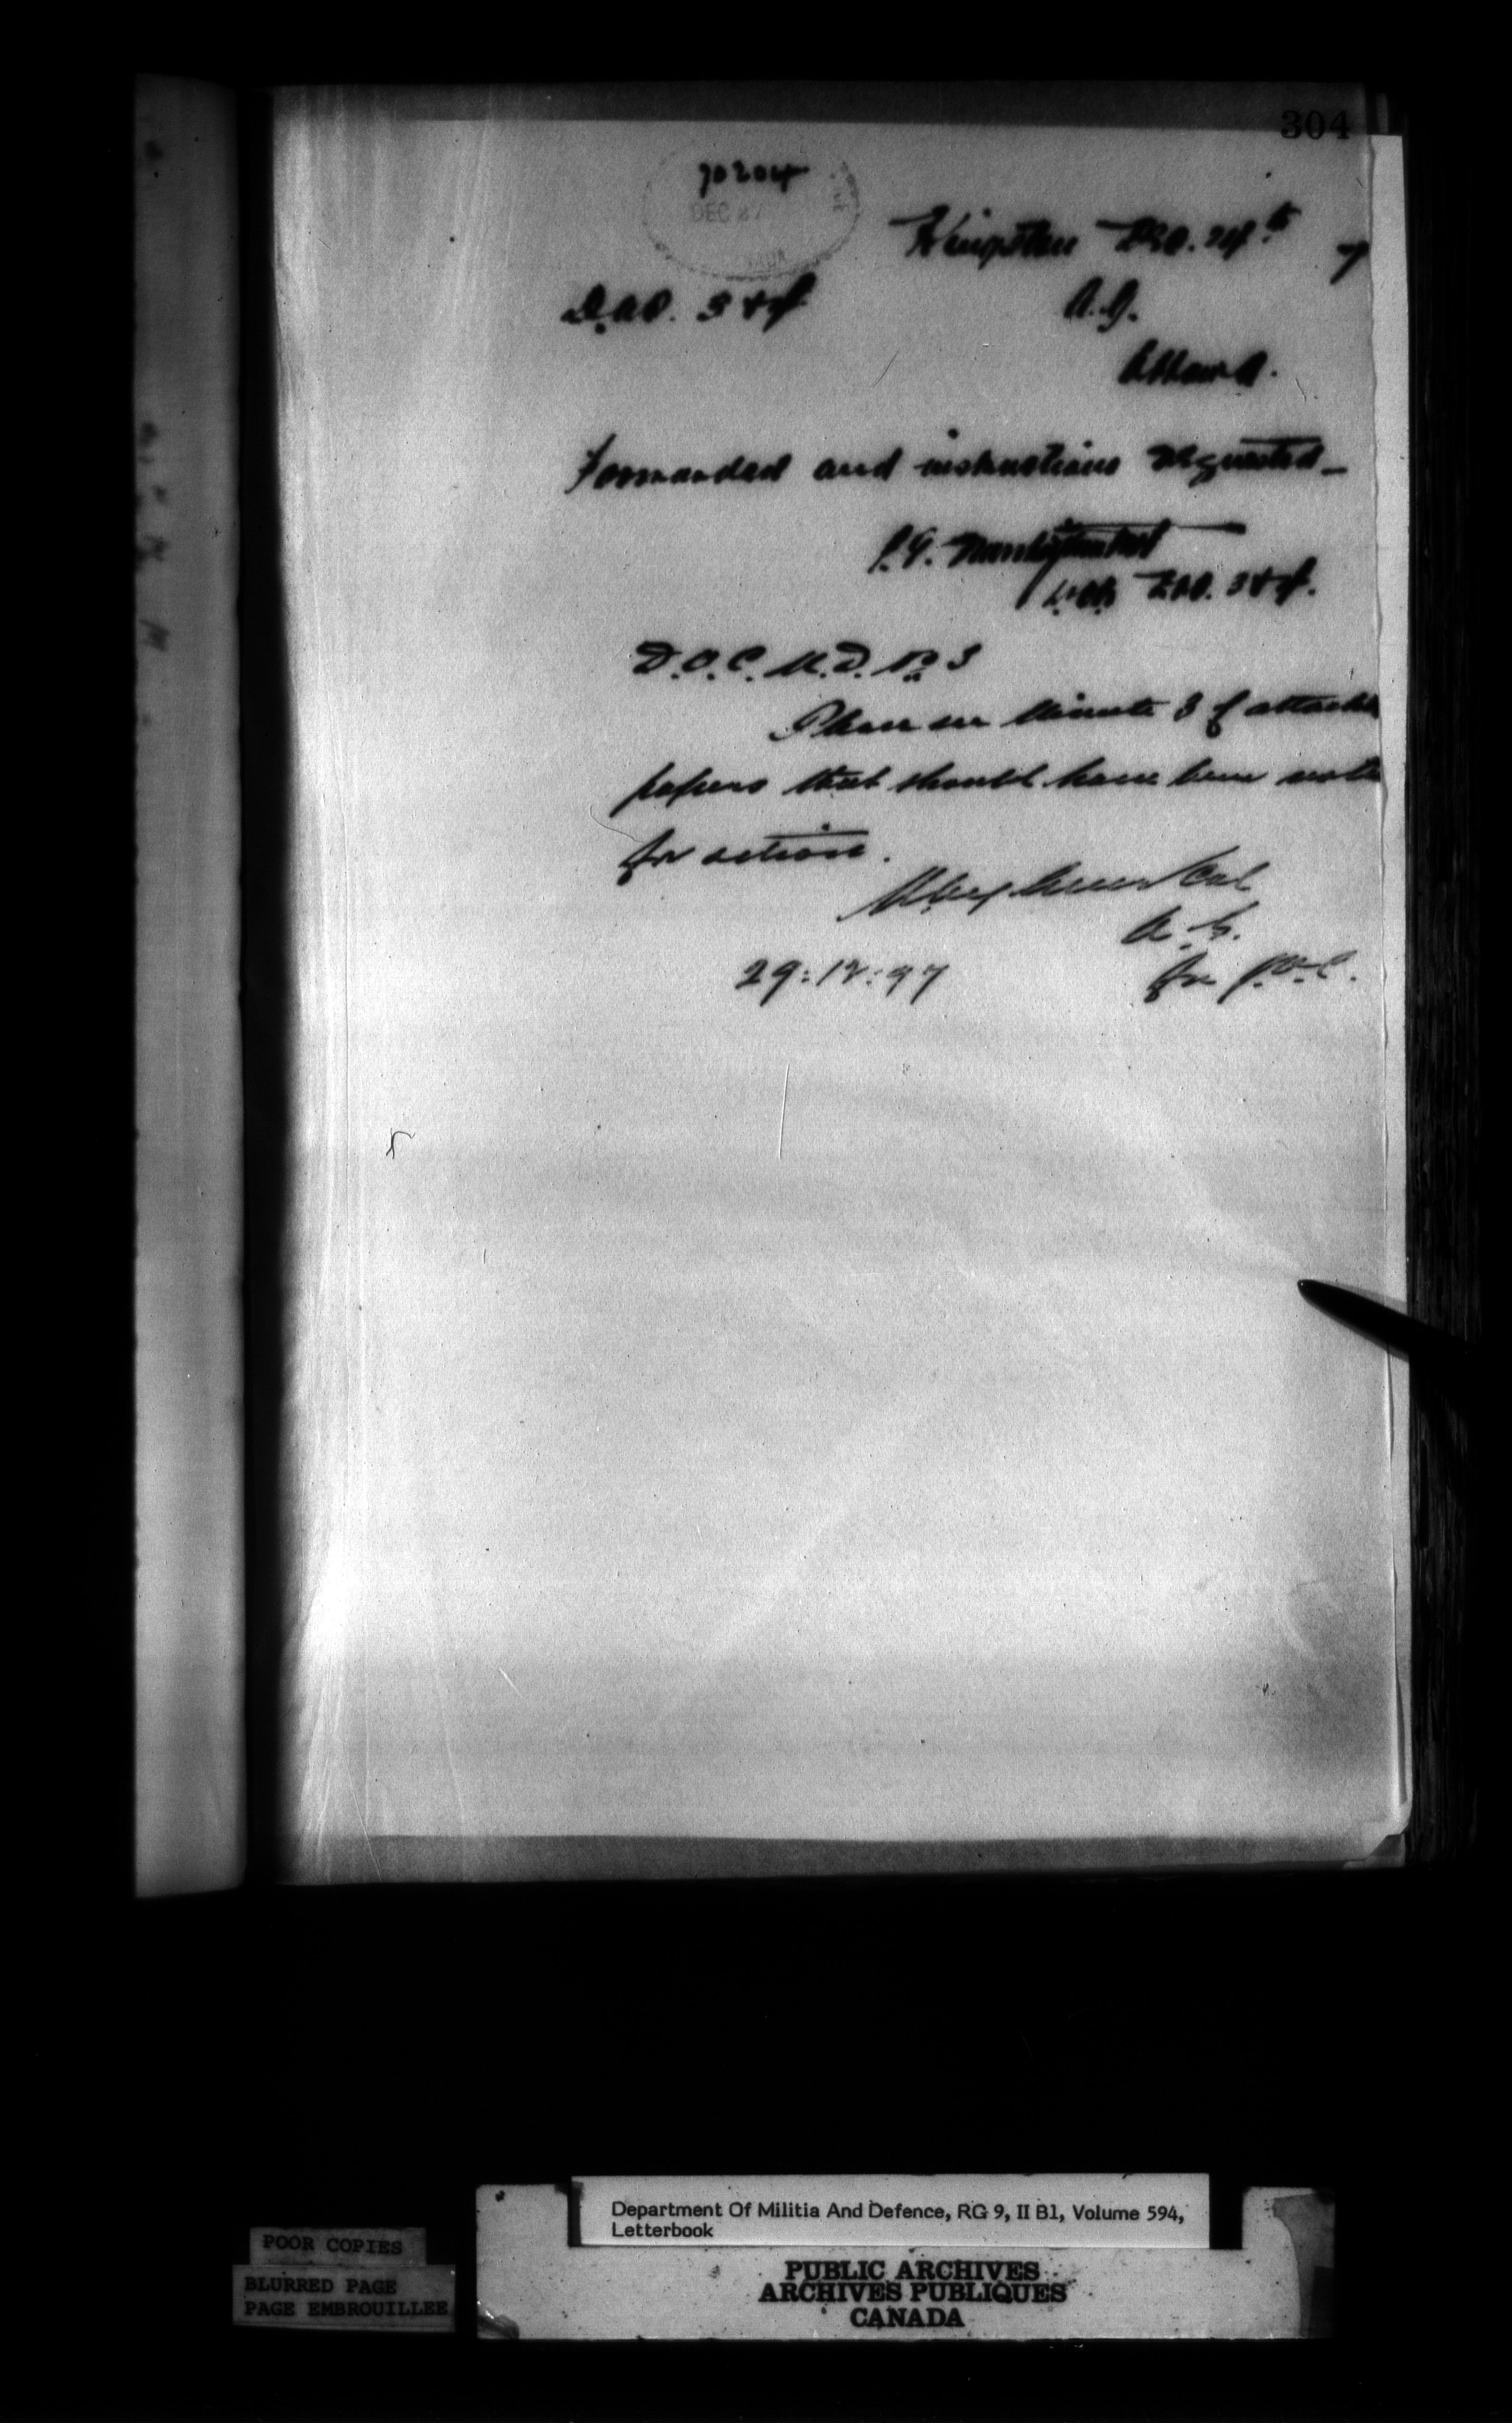 304
70204
DEC 27
Kingston Dec. 24th 7
D.O.C. 3 & 4 A.G.
Ottawa.
Forwarded and instructions requested _
D.O.C. 3 & 4.
D.O.C. M.D. No 3
Please see Minute 3 of attached
papers that should have been noted
for action.
Col
A. G.
29:12:97 for G.O.C.
Department Of Militia And Defence, RG 9, II B1, Volume 594,
Letterbook
POOR COPIES
BLURRED PAGE
PAGE EMBROUILLEE
PUBLIC ARCHIVES
ARCHIVES PUBLIQUES
CANADA